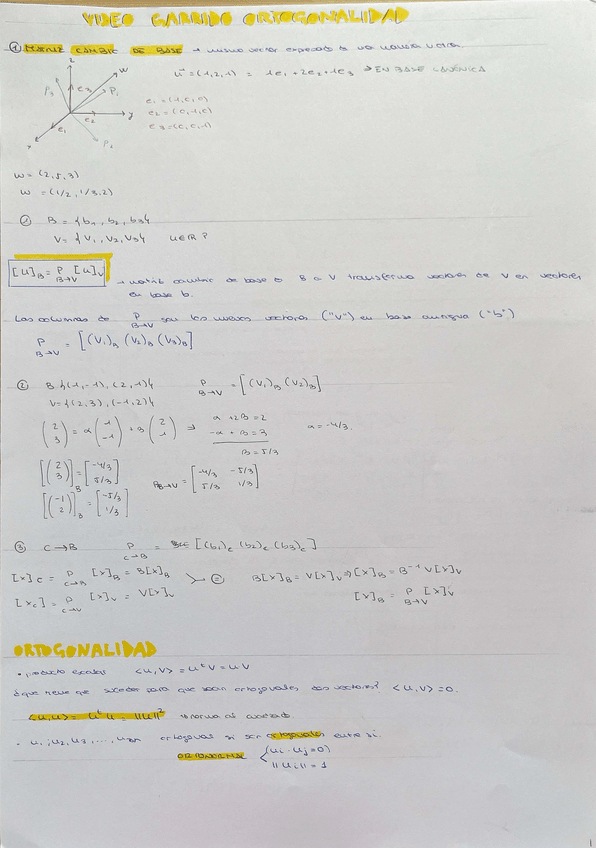 VIDEO GARRIDO ORTOGONALIDAD
① MATRIZ CAMBIO DE BASE → mismo vector expresado de
z
w
u⃗ = (1,2,1) = 1e₁ + 2e₂ + 1e₃ → EN BASE CANÓNICA
P₃ e₃ P₁
e₁ = (1,0,0)
y
e₂ = (0,1,0)
e₂
e₁
e₃ = (0,0,1)
x
P₂
w = (2,5,3)
w = (1/2, 1/3, 2)
① B = {b₁, b₂, b₃}
V = {V₁, V₂, V₃} u∈R ?
[u]B = P B→V [u]V
→ matriz cambio de base de B a V transforma vectores de V en vectores
en base b.
Las columnas de P B→V son los nuevos vectores ("v") en base antigua ("b")
P B→V = [(V₁)B (V₂)B (V₃)B]
② B {(1,-1), (2,1)} P B→V = [(V₁)B (V₂)B]
V = {(2,3), (-1,2)}
(2 3) = α (1 -1) + B (2 1) ⇒ α + 2B = 2 α = -4/3.
-α + B = 3
B = 5/3
[(2 3)]B = [-4/3 5/3]
PB→V = [-4/3 -5/3
5/3 1/3]
[(-1 2)]B = [-5/3 1/3]
③ C→B P C→B = [(b₁)c (b₂)c (b₃)c]
[x]c = P C→B [x]B = B[x]B
= B[x]B = V[x]V ⇒ [x]B = B⁻¹V[x]V
[xc] = P C→V [x]V = V[x]V
[x]B = P B→V [x]V
ORTOGONALIDAD
• producto escalar <u,v> = uᵗv = uv
¿que tiene que suceder para que sean ortogonales dos vectores? <u,v> = 0.
<u,u> = uᵗu = ||u||² → norma al cuadrado.
• u₁, u₂, u₃, ..., ortogonal si son ortogonales entre sí.
ORTONORMAL { (ui · uj = 0)
||ui|| = 1
1